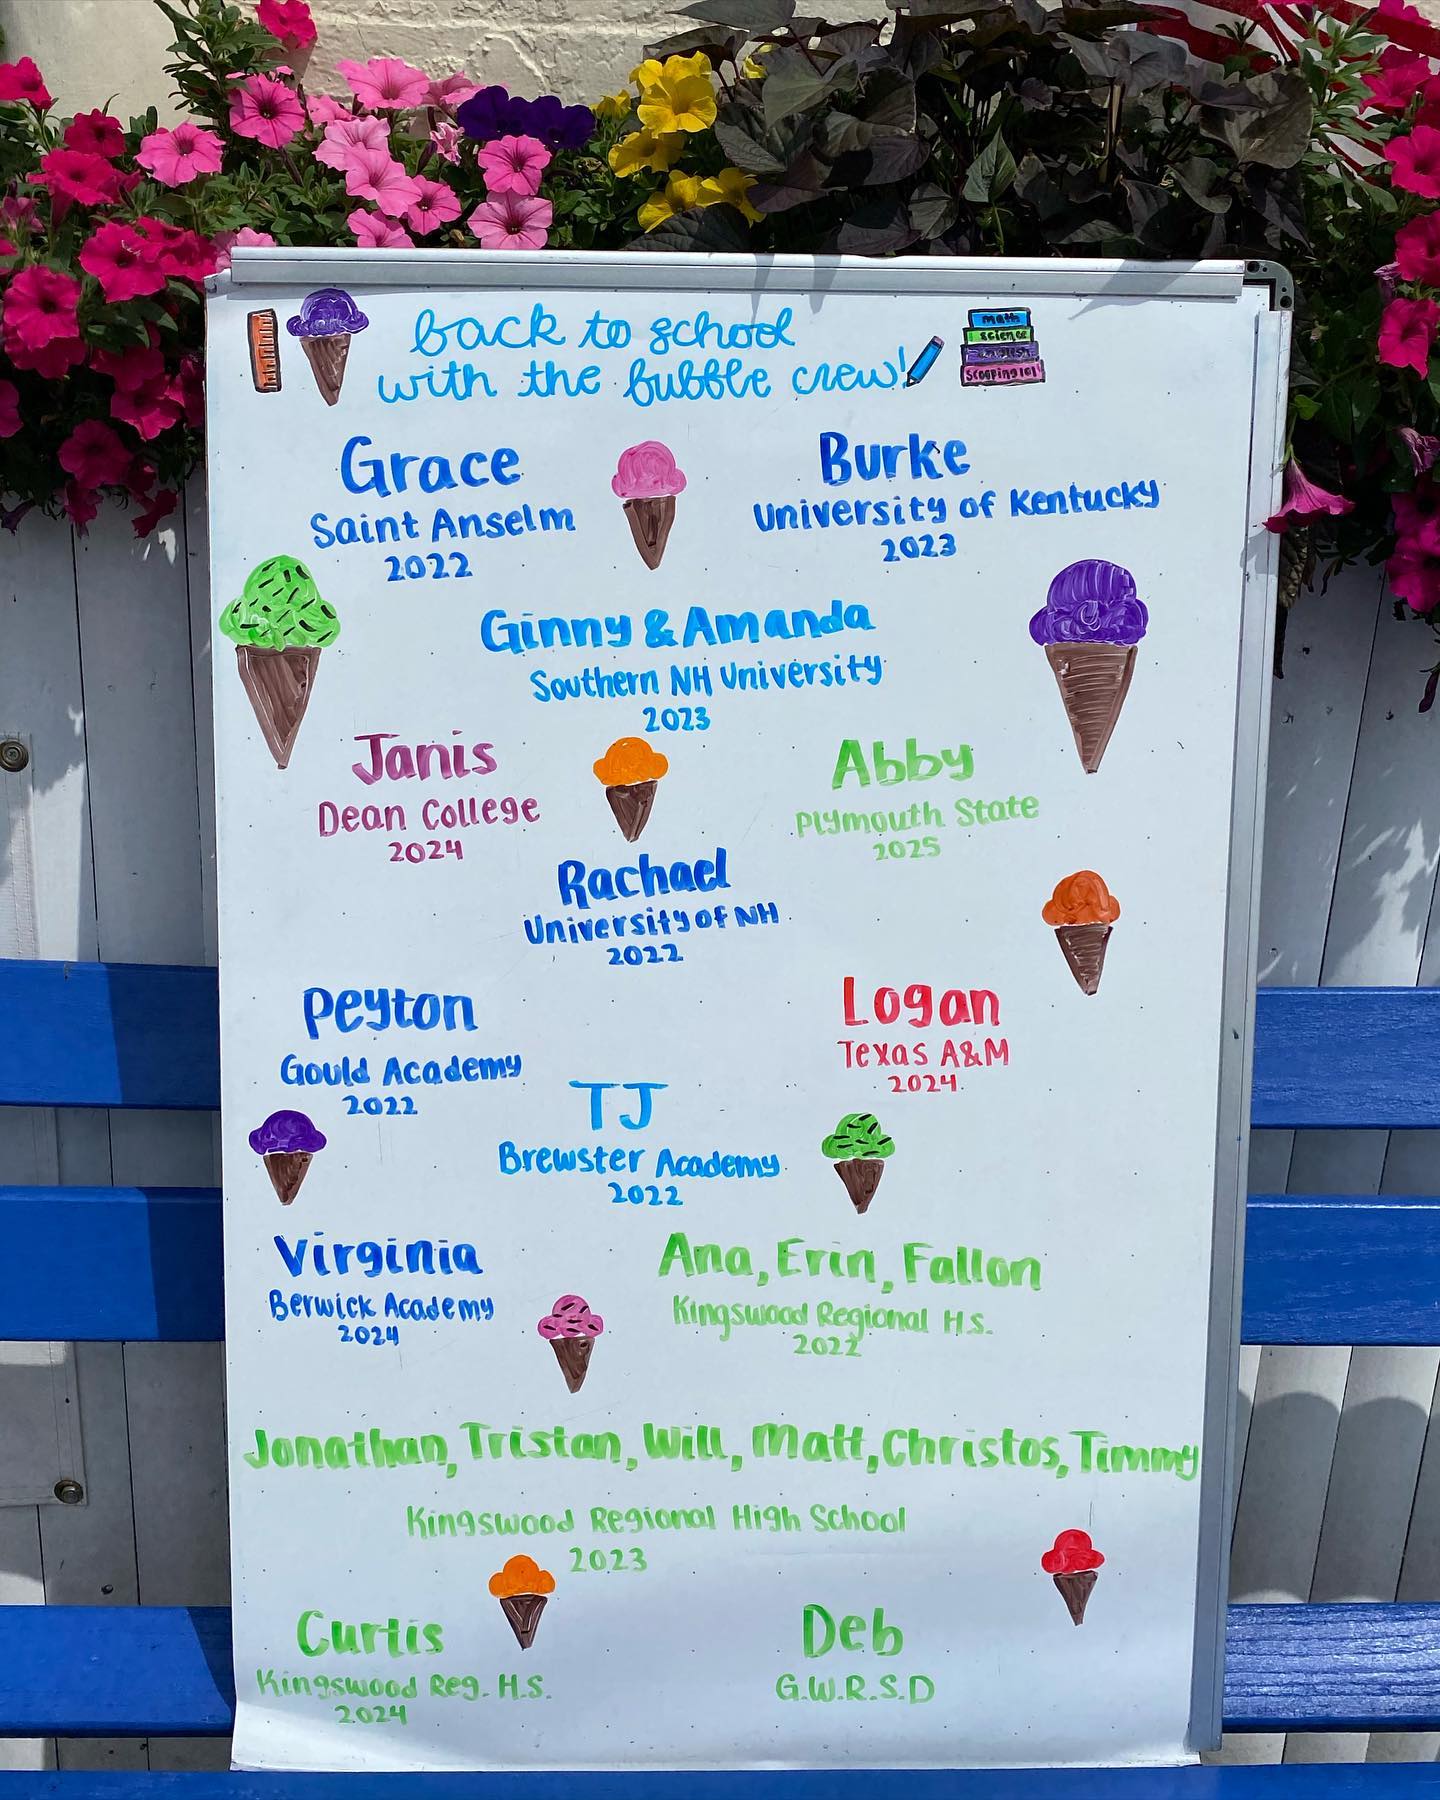 back to school
with the bubble crew!
math
science
english
Scooping 101
Grace
Saint Anselm
2022
Burke
University of Kentucky
2023
Ginny & Amanda
Southern NH University
2023
Janis
Dean College
2024
Abby
Plymouth State
2025
Rachael
University of NH
2022
Peyton
Gould Academy
2022
Logan
Texas A&M
2024
TJ
Brewster Academy
2022
Virginia
Berwick Academy
2024
Ana, Erin, Fallon
Kingswood Regional H.S.
2022
Jonathan, Tristan, Will, Matt, Christos, Timmy
Kingswood Regional High School
2023
Curtis
Kingswood Reg. H.S.
2024
Deb
G.W.R.S.D